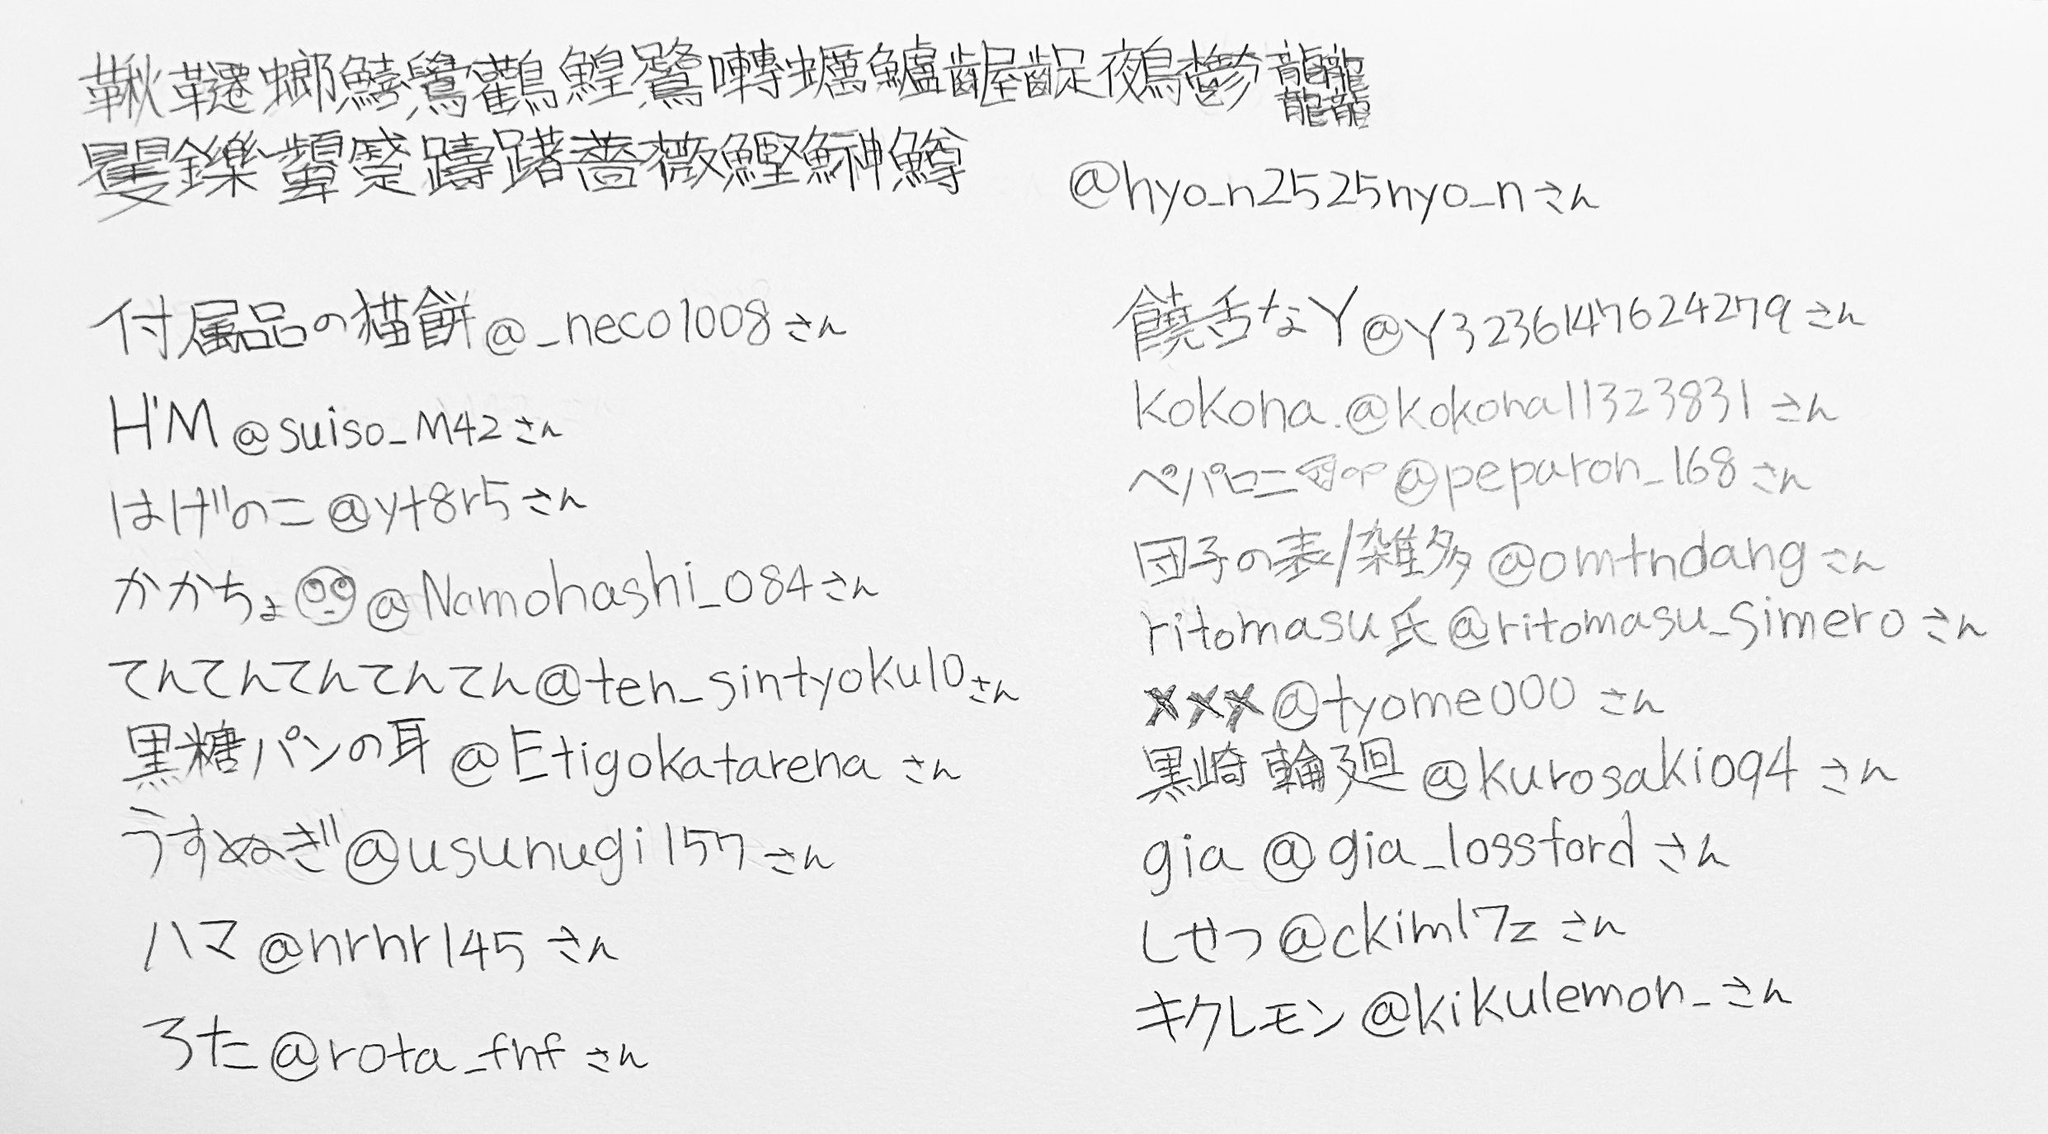 鞦韆螂鱚鸞鸛鰉鷺囀蠣鱸齷齪鵺鬱龘
矍鑠顰蹙躊躇薔薇鰹鰰鱒
@hyo_n2525nyo_nさん
付属品の猫餅@_neco1008さん
H'M@suiso_M42さん
はげのこ@yt8r5さん
かかちょ🙄@Namohashi_084さん
てんてんてんてんてん@ten_sintyoku10さん
黒糖パンの耳@Etigokatarenaさん
うすぬぎ@usunugi157さん
ハマ@nrhr145さん
ろた@rota_fnfさん
饒舌なY@Y3236147624279さん
kokona.@kokona11323831さん
ペパロニ@peparon_168さん
団子の表/雑多@omtndangさん
ritomasu氏@ritomasu_simeroさん
✖✖✖@tyome000さん
黒崎 輪廻@kurosaki094さん
gia@gia_lossfordさん
しせつ@ckim17zさん
キクレモン@kikulemon_さん